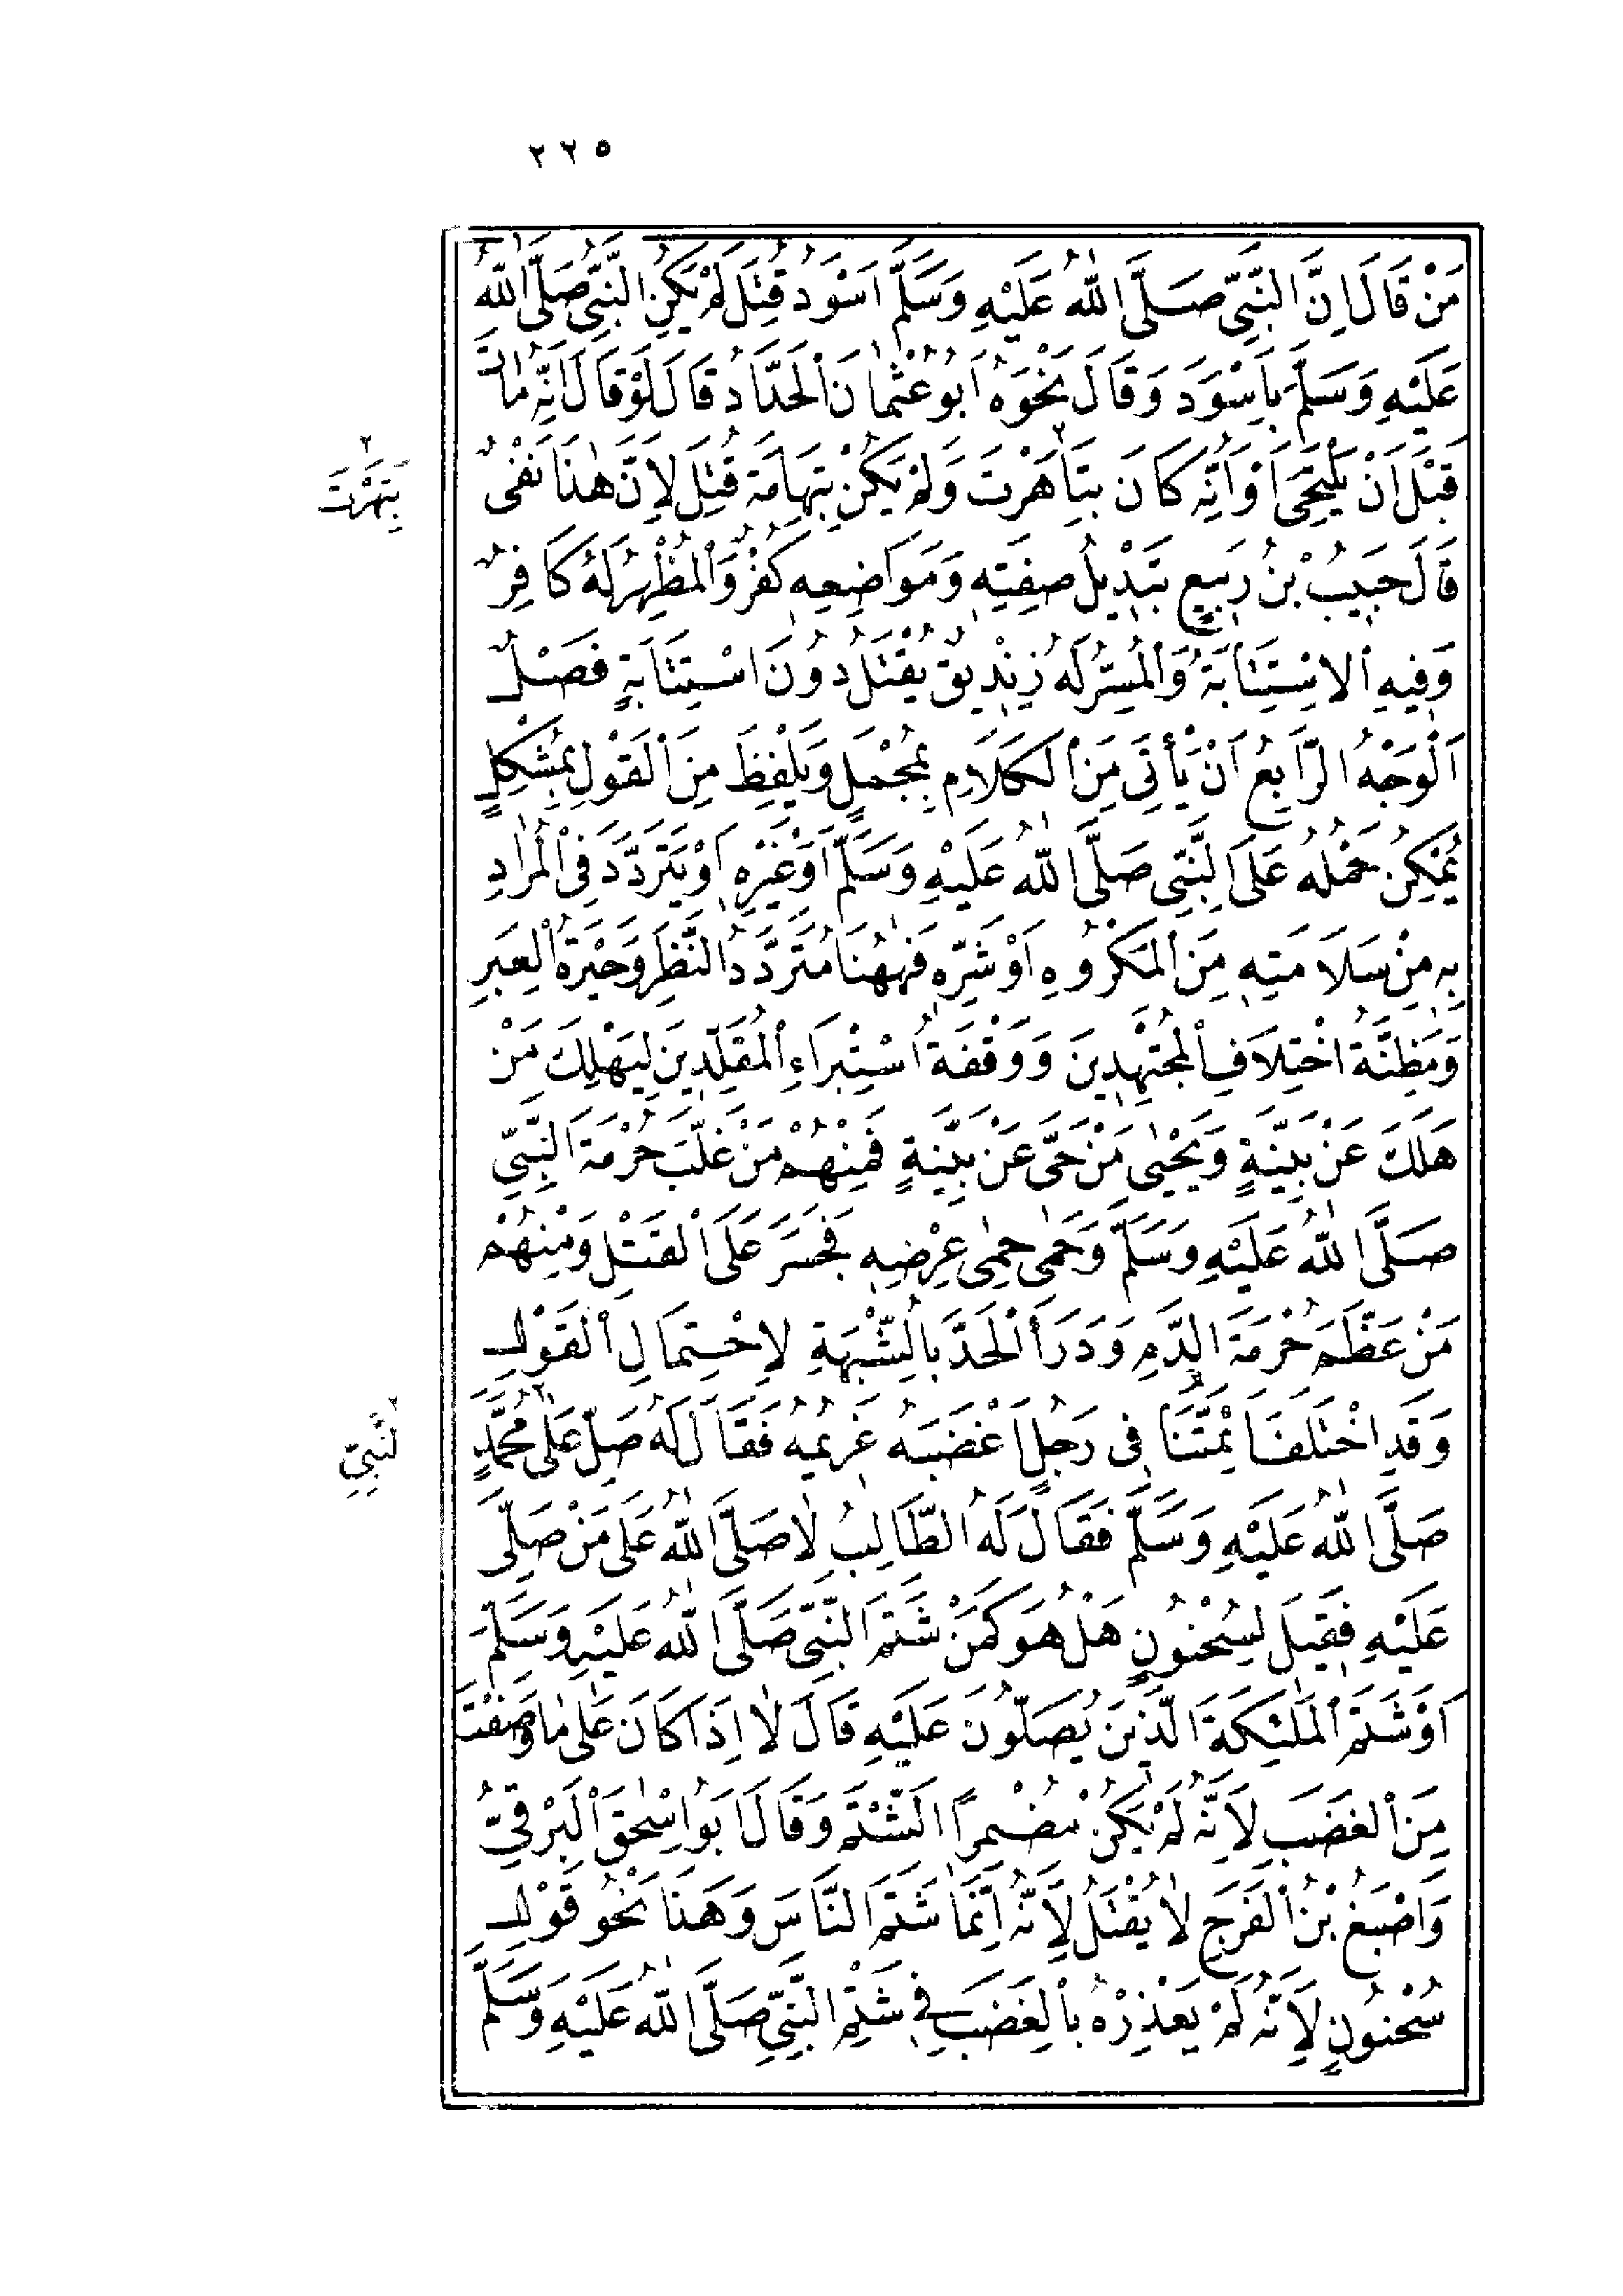 ٢٢٥
مَنْ قَالَ اِنَّ النَّبِىَّ صَلَّى اللّٰهُ عَلَيْهِ وَسَلَّمَ اَسْوَدُ قُتِلَ لَمْ يَكُنِ النَّبِىُّ صَلَّى اللّٰهُ
عَلَيْهِ وَسَلَّمَ بِاَسْوَدَ وَقَالَ نَحْوَهُ اَبُو عُثْمٰانَ الْحَدَّادُ قَالَ لَوْ قَالَ اِنَّهُ مٰاتَ
قَبْلَ اَنْ يَلْتَحِىَ اَوْ اَنَّهُ كَانَ بِتَاهَرْتَ وَلَمْ يَكُنْ بِتِهَامَةَ قُتِلَ لِاَنَّ هٰذَا نَفْىٌ
٢
بِتَهَرْتَ
قَالَ حَبِيبُ بْنُ رَبِيعٍ تَبْدِيلُ صِفَتِهِ وَمَوَاضِعِهِ كُفْرٌ وَالْمُظْهِرُ لَهُ كَافِرٌ
وَفِيهِ الْاِسْتِتَابَةُ وَالْمُسِرُّ لَهُ زِنْدِيقٌ يُقْتَلُ دُونَ اسْتِتَابَةٍ فَصْلٌ
اَلْوَجْهُ الرَّابِعُ اَنْ يَأْتِىَ مِنَ الْكَلَامِ بِمُجْمَلٍ وَيَلْفِظَ مِنَ الْقَوْلِ بِمُشْكِلٍ
يُمْكِنُ حَمْلُهُ عَلَى النَّبِىِّ صَلَّى اللّٰهُ عَلَيْهِ وَسَلَّمَ اَوْ غَيْرِهِ اَوْ يَتَرَدَّدَ فِى الْمُرَادِ
بِهِ مِنْ سَلَامَتِهِ مِنَ الْمَكْرُوهِ اَوْ شَرِّهِ فَهٰهُنَا مُتَرَدَّدُ النَّظَرِ وَحَيْرَةُ الْعِبَرِ
وَمَظِنَّةُ اخْتِلَافِ الْمُجْتَهِدِينَ وَوَقْفَةُ اسْتِبْرَاءِ الْمُقَلِّدِينَ لِيَهْلِكَ مَنْ
هَلَكَ عَنْ بَيِّنَةٍ وَيَحْيٰى مَنْ حَىَّ عَنْ بَيِّنَةٍ فَمِنْهُمْ مَنْ غَلَّبَ حُرْمَةَ النَّبِىِّ
صَلَّى اللّٰهُ عَلَيْهِ وَسَلَّمَ وَحَمٰى حِمٰى عِرْضِهِ فَجَسَرَ عَلَى الْقَتْلِ وَمِنْهُمْ
مَنْ عَظَّمَ حُرْمَةَ الدَّمِ وَدَرَأَ الْحَدَّ بِالشُّبْهَةِ لِاحْتِمَالِ الْقَوْلِ
وَقَدِ اخْتَلَفَ اَئِمَّتُنَا فِى رَجُلٍ اَغْضَبَهُ غَرِيمُهُ فَقَالَ لَهُ صَلِّ عَلٰى مُحَمَّدٍ
٢
النَّبِيِّ
صَلَّى اللّٰهُ عَلَيْهِ وَسَلَّمَ فَقَالَ لَهُ الطَّالِبُ لٰا صَلَّى اللّٰهُ عَلَى مَنْ صَلّٰى
عَلَيْهِ فَقِيلَ لِسُحْنُونٍ هَلْ هُوَ كَمَنْ شَتَمَ النَّبِىَّ صَلَّى اللّٰهُ عَلَيْهِ وَسَلَّمَ
اَوْ شَتَمَ الْمَلٰئِكَةَ الَّذِينَ يُصَلُّونَ عَلَيْهِ قَالَ لٰا اِذَا كَانَ عَلٰى مٰا وَصَفْتَ
مِنَ الْغَضَبِ لِاَنَّهُ لَمْ يَكُنْ مُضْمِرًا الشَّتْمَ وَقَالَ اَبُو اِسْحٰقَ الْبَرْقِىُّ
وَاَصْبَغُ بْنُ الْفَرَجِ لٰا يُقْتَلُ لِاَنَّهُ اِنَّمَا شَتَمَ النَّاسَ وَهَذَا نَحْوُ قَوْلِ
سُحْنُونٍ لِاَنَّهُ لَمْ يَعْذِرْهُ بِالْغَضَبِ فِى شَتْمِ النَّبِىِّ صَلَّى اللّٰهُ عَلَيْهِ وَسَلَّمَ